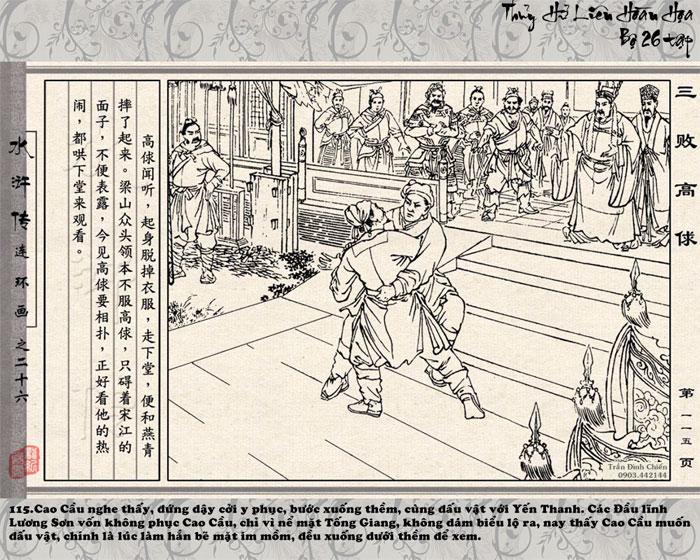 Thủy Hử Liên Hoàn Họa
Bộ 26 tập
水浒传连环画之二十六
三败高俅
高俅闻听，起身脱掉衣服，走下堂，便和燕青
摔了起来。梁山众头领本不服高俅，只碍着宋江的
面子，不便表露，今见高俅要相扑，正好看他的热
闹，都哄下堂来观看。
第一一五页
Trần Đình Chiến
0903.442144
115.Cao Cầu nghe thấy, đứng dậy cởi y phục, bước xuống thềm, cùng đấu vật với Yến Thanh. Các Đầu lĩnh
Lương Sơn vốn không phục Cao Cầu, chỉ vì nể mặt Tống Giang, không dám biểu lộ ra, nay thấy Cao Cầu muốn
đấu vật, chính là lúc làm hắn bẽ mặt im mồm, đều xuống dưới thềm để xem.